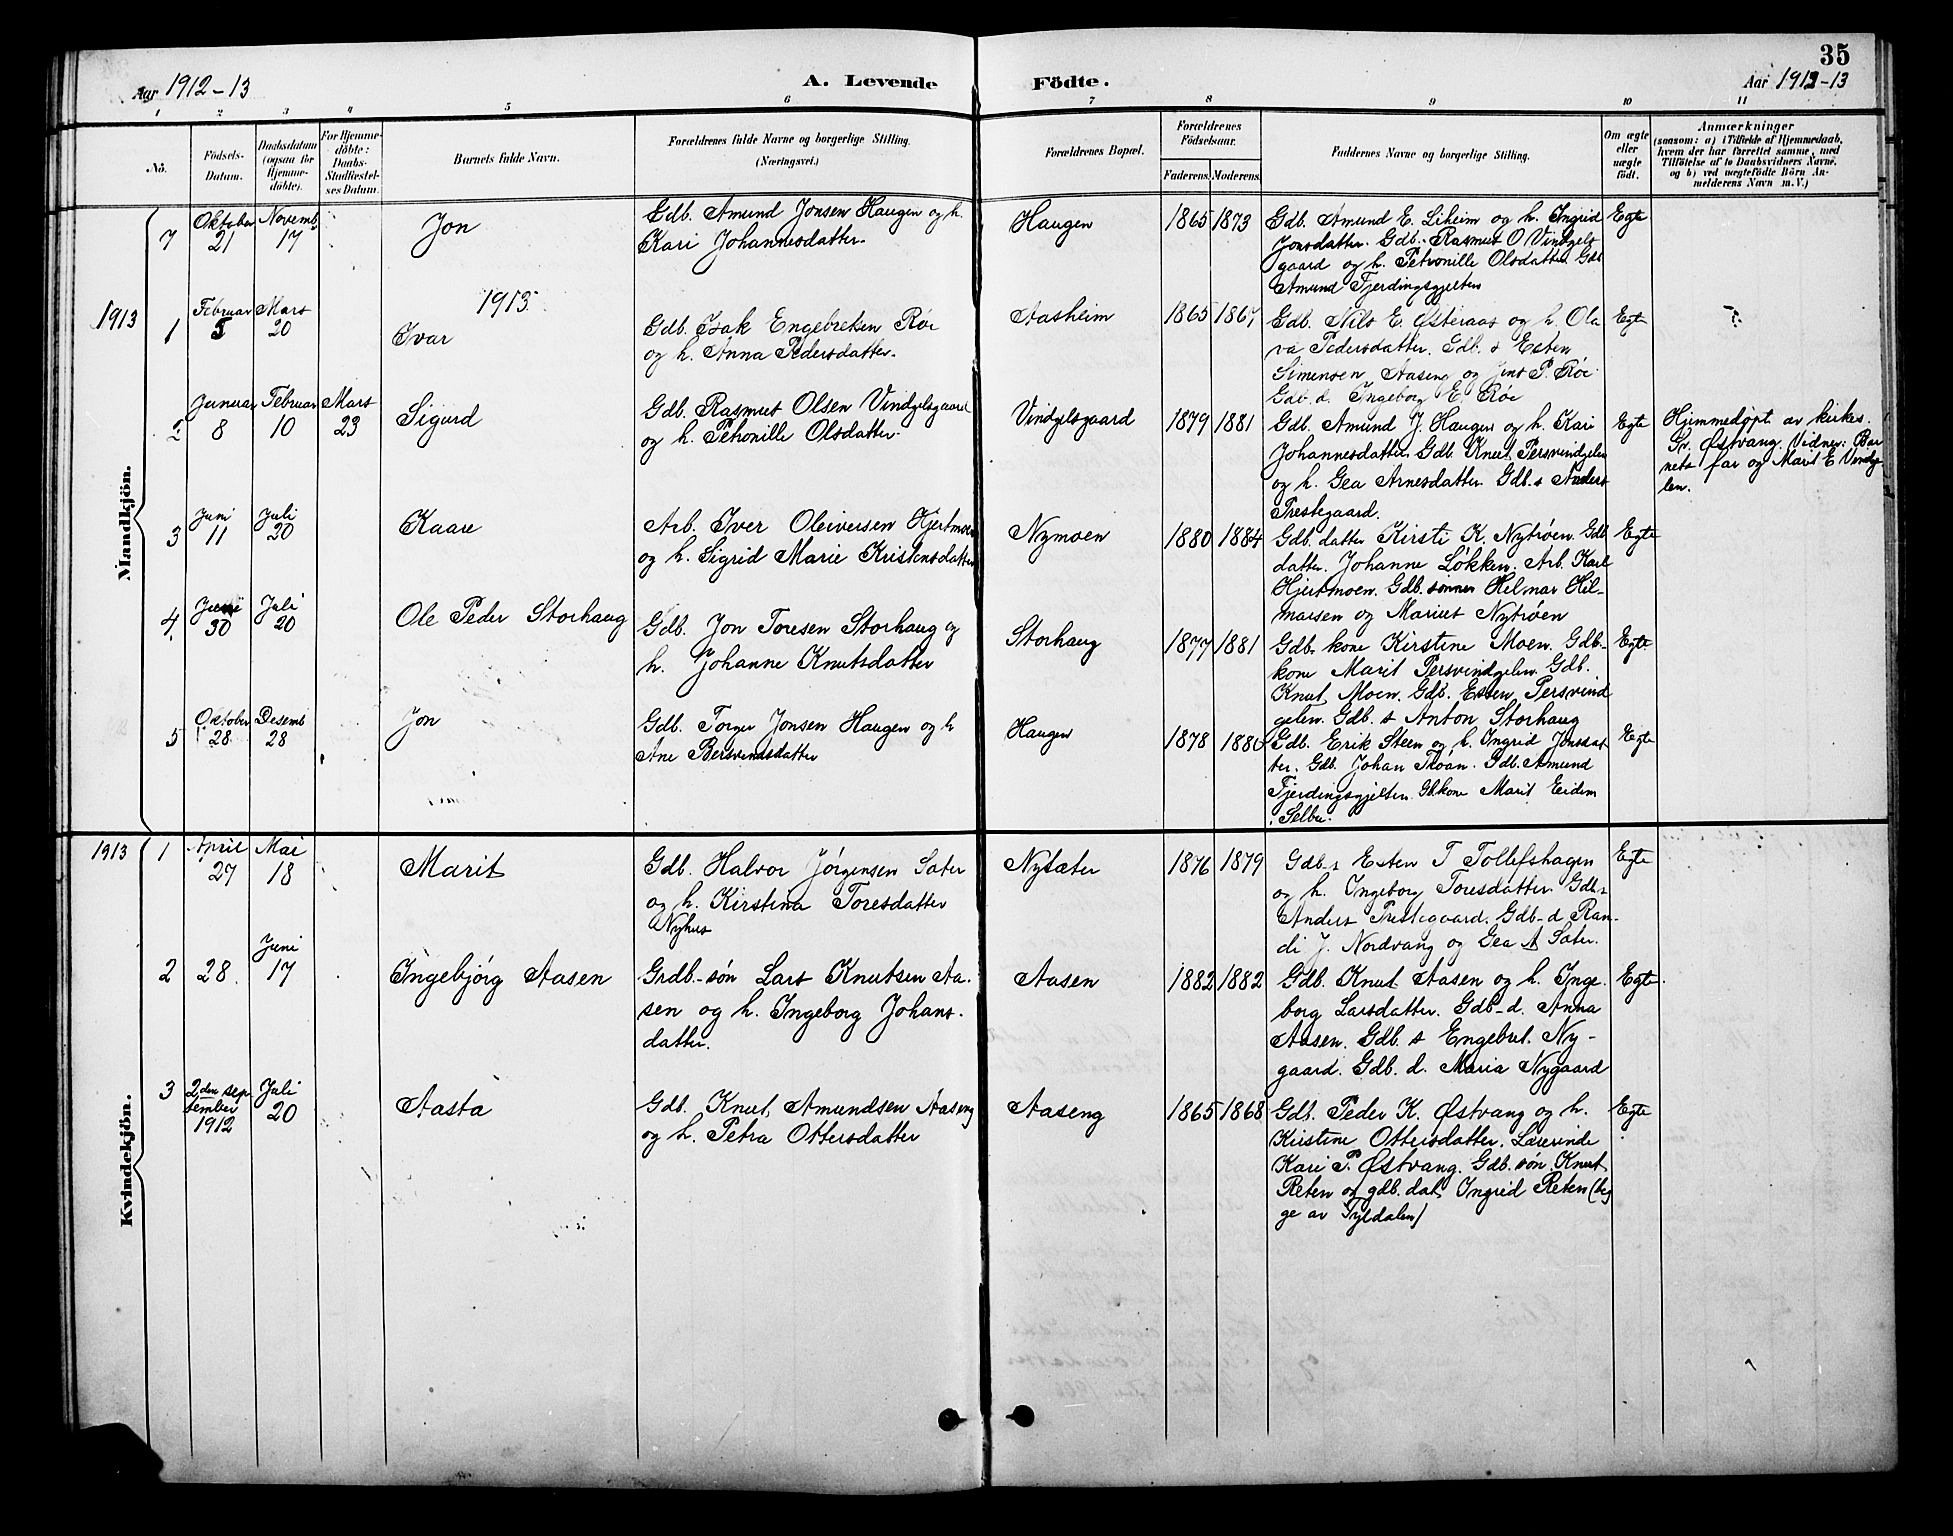 35
Aar 1912-13
A. Levende
Födte.
Aar 1912-13
1 2 3 4 5 6 7 8 9 10 11
No.
Födsels-
Datum.
Daabsdatum
(ogsaa for
Hjemme-
döbte).
For Hjemme-
döbte:
Daabs-
Stadfæstel-
ses Datum.
Barnets fulde Navn.
Forældrenes fulde Navne og borgerlige Stilling.
(Næringsvei.)
Forældrenes Bopæl.
Forældrenes
Födselsaar.
Faderens. Moderens.
Faddernes Navne og borgerlige Stilling.
Om ægte
eller
uægte
födt.
Anmærkninger
(saasom: a) i Tilfælde af Hjemmedaab,
hvem der har forrettet samme, med
Tilföielse af to Daabsvidners Navne,
og b) ved uægtefödte Börn An-
melderens Navn m. V.)
Mandkjön.
7
Oktober
21
Novemb
17
Jon
Gdb. Amund Jonsen Haugen og h.
Kari Johannesdatter.
Haugen
1865 1873
Gdb. Amund E. Liheim og h. Ingrid
Jonsdatter. Gdb. Rasmus O Vindgels
gaard og h. Petronille Olsdatter. Gdb
Amund Fjerdingsgjelten
Egte
1913
1913
1
Februar
5
Mars
20
Ivar
Gdb. Isak Engebretsen Röe
og h. Anna Pedersdatter.
Aasheim
1865 1867
Gdb. Nils E. Østeraas og h. Ola
va Pedersdatter. Gdb. s Esten
Simensen Aaseng og Jens P. Röe
Gdb. d. Ingeborg E. Röe
Egte
2
Januar
8
Februar
10
Mars
23
Sigurd
Gdb. Rasmus Olsen Vindgelsgaard
og h. Petronille Olsdatter.
Vindgelsgaard
1879 1881
Gdb. Amund J. Haugen og h. Kari
Johannesdatter. Gdb. Knut Persvindgelen
og h. Gea Arnesdatter. Gdb. s Anders
Trestegaard.
Egte
Hjemmedøpt av kirkes.
Gr. Østvang. Vidner: Bar
nets far og Marit E Vindg
len.
3
Juni
11
Juli
20
Kaare
Arb. Iver Oleiversen Hjertmoen
og h. Sigrid Marie Kristensdatter
Nymoen
1880 1884
Gdb. datter Kirsti K. Nytrøen. Gdb
datter. Johanne Løkken. Arb. Karl
Hjertmoen. Gdb. sønner Hilmar Hil-
marsen og Marius Nytrøen
Egte
4.
Juni
30
Juli
20
Ole Peder Storhaug
Gdb. Jon Toresen Storhaug og
h. Johanne Knutsdatter
Storhaug
1877 1881
Gdb. kone Kirstine Moen. Gdb.
kone Marit Persvindgelen. Gdb.
Knut Moen. Gdb. Esten Persvind
gelen. Gdb. s Anton Storhaug
Egte
5
Oktober
28
Desemb
28
Jon
Gdb. Torger Jonsen Haugen og h
Ane Bersvendsdatter
Haugen
1878 1880
Gdb. Erik Steen og h. Ingrid Jonsdat
ter. Gdb. Johan Troan. Gdb. Amund
Fjerdingsgjelten. Gb. kone Marit Eidem
i Selbu.
Egte
Kvindekjön.
1913
1
April
27
Mai
18
Marit
Gdb. Halvor Jørgensen Sæter
og h. Kirstina Toresdatter
Nyhus
Nysæter
1876 1879
Gdb. s Esten T Tollefshagen
og h. Ingeborg Toresdatter. Gdb. s
Anders Trestegaard. Gdb-d. Ran-
di J. Nordvang og Gea A Sæter.
Egte
2
28.
Juni
17
Ingebjørg Aasen
Grdb-søn Lars Knutsen Aa-
sen og h. Ingeborg Johans-
datter.
Aasen
1882 1882
Gdb. Knut Aasen og h. Inge-
borg Larsdatter. Gdb-d. Anna
Aasen. Gdb. s Engebret Ny-
gaard. Gdb. d. Maria Nygaard
Egte
3
2den sep
tember
1912
Juli
20
Aasta
Gdb. Knut Amundsen Aaseng
og h. Petra Ottersdatter
Aaseng
1865 1868
Gdb. Peder K. Østvang og h.
Kirstine Ottersdatter. Lærerinde
Kari P. Østvang. Gdb. søn Knut
Reten og gdb. dat. Ingrid Reten (beg
ge av Tyldalen)
Egte